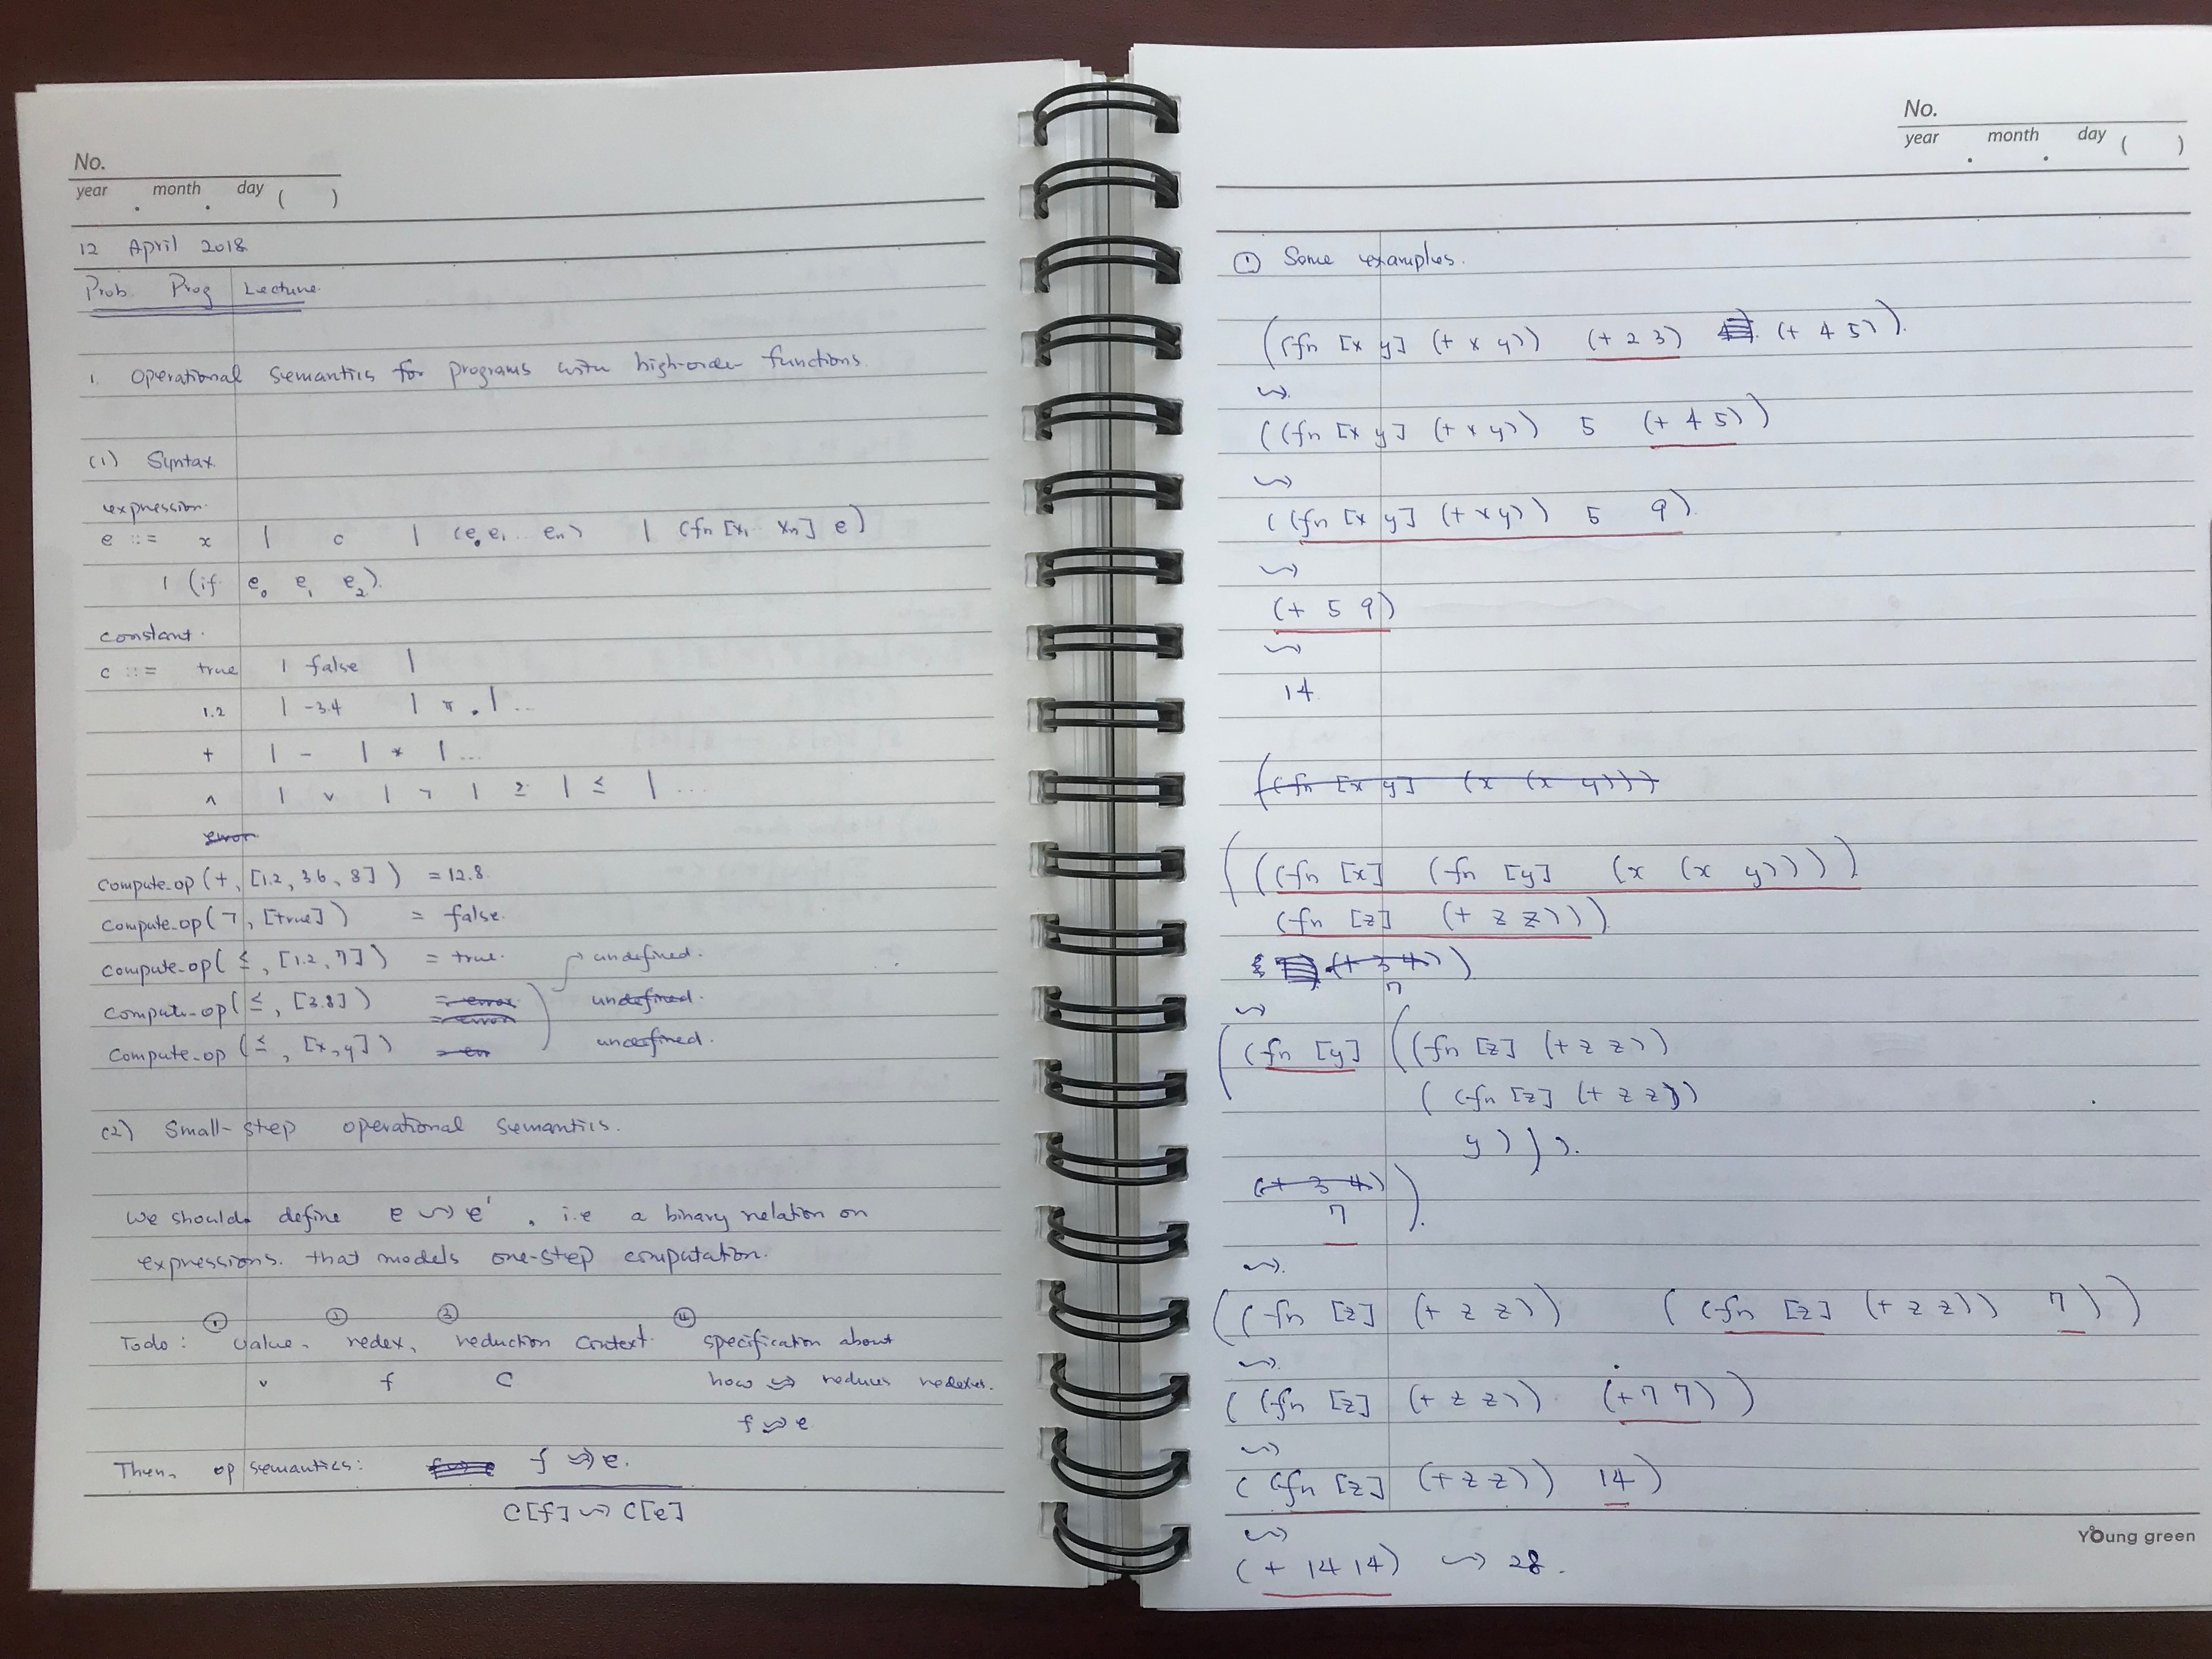 No.
year . month . day ( )
12 April 2018
Prob. Prog Lecture.
1. Operational semantics for programs with high-order functions.
(1) Syntax
expression.
e ::= x | c | (e₀ e₁ ... eₙ) | (fn [x₁ ... xₙ] e)
| (if e₀ e₁ e₂).
constant.
c ::= true | false |
1.2 | -3.4 | π | ...
+ | - | * | ...
∧ | ∨ | ¬ | ≥ | ≤ | ...
error
compute_op (+, [1.2, 3.6, 8]) = 12.8.
compute_op (¬, [true]) = false.
compute_op (≤, [1.2, 7]) = true. → undefined.
compute_op (≤, [3.8]) = error = error undefined.
compute_op (≤, [x, y]) = err undefined.
(2) Small-step operational semantics.
We should define e ⇝ e', i.e a binary relation on
expressions. that models one-step computation.
① ② ③ ④
Todo: value, redex, reduction context. specification about
v f C how ⇝ reduces redexes.
f ⇝ e
Then, op semantics: f ⇝ e.
C[f] ⇝ C[e]
No.
year . month . day ( )
① Some examples.
((fn [x y] (+ x y)) (+ 2 3) (+ 4 5)).
⇝
((fn [x y] (+ x y)) 5 (+ 4 5))
⇝
((fn [x y] (+ x y)) 5 9)
⇝
(+ 5 9)
⇝
14
((fn [x y] (x (x y)))
(((fn [x] (fn [y] (x (x y))))
(fn [z] (+ z z)))
(+ 3 4))
7
⇝
((fn [y] ((fn [z] (+ z z))
((fn [z] (+ z z))
y))).
(+ 3 4))
7
⇝
((fn [z] (+ z z)) ((fn [z] (+ z z)) 7))
⇝
((fn [z] (+ z z)) (+ 7 7))
⇝
((fn [z] (+ z z)) 14)
⇝
(+ 14 14) ⇝ 28.
Young green